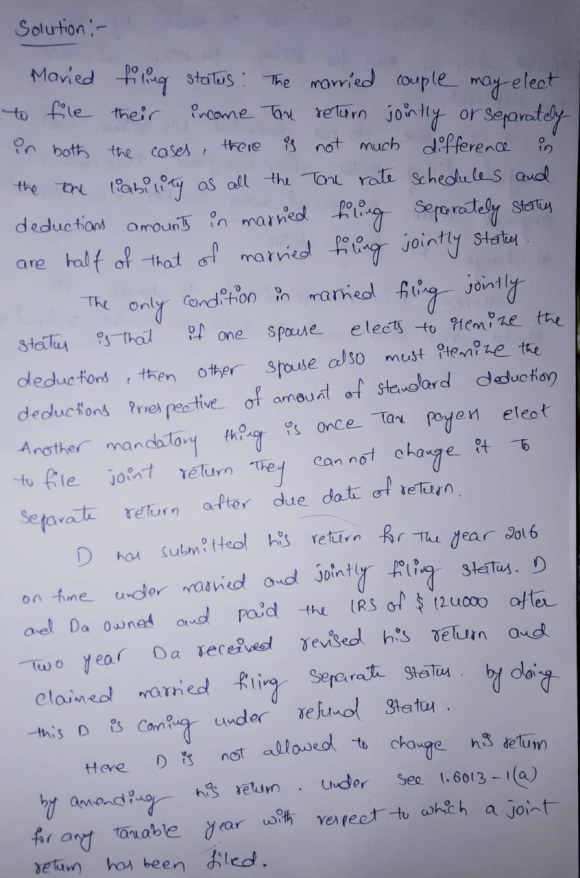 Solution:-
Maried filing status: The married couple may elect
to file their income Tax return jointly or separately
in both the cases, there is not much difference in
the tax liability as all the Tax rate schedules and
deductions amounts in married filing separately status
are half of that of married filing jointly status.
The only condition in married filing jointly
status is that if one spouse elects to itemize the
deductions, then other spouse also must itemize the
deductions irrespective of amount of standard deduction
Another mandatory thing is once Tax payers elect
to file joint return They can not change it to
separate return after due date of return.
D has submitted his return for The year 2016
on time under married and jointly filing status. D
and Da owned and paid the IRS of $ 124000 after
Two year Da received revised his return and
claimed married filing separate status. by doing
this D is coming under refund status.
Here D is not allowed to change his return
by amending his return. under sec 1.6013-1(a)
for any taxable year with respect to which a joint
return has been filed.